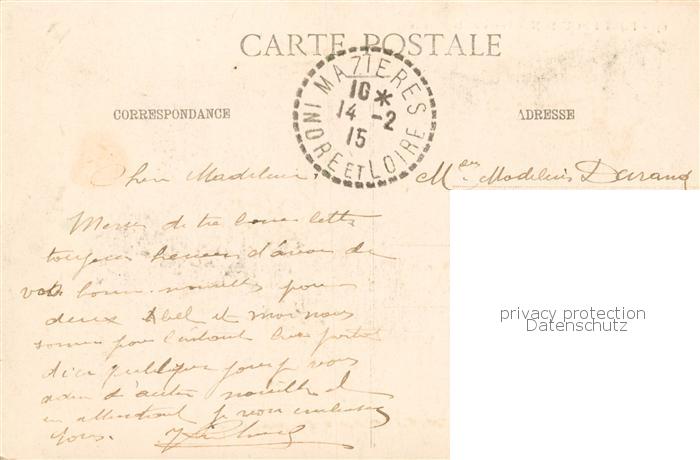 CARTE POSTALE
MAZIERES
INDRE ET LOIRE
10 *
14 -2
15
CORRESPONDANCE
ADRESSE
Chere Madeleine.
Melle Madeleine Durand
Merci de ta bonne lettre
toujours heureux d'avoir de
vos bonnes nouvelles pour
deux Abel et moi nous
sommes pour l'instant
d'ici quelques jours vous
d'autres nouvelles
en attendant je vous embrasse
tous.
privacy protection
Datenschutz